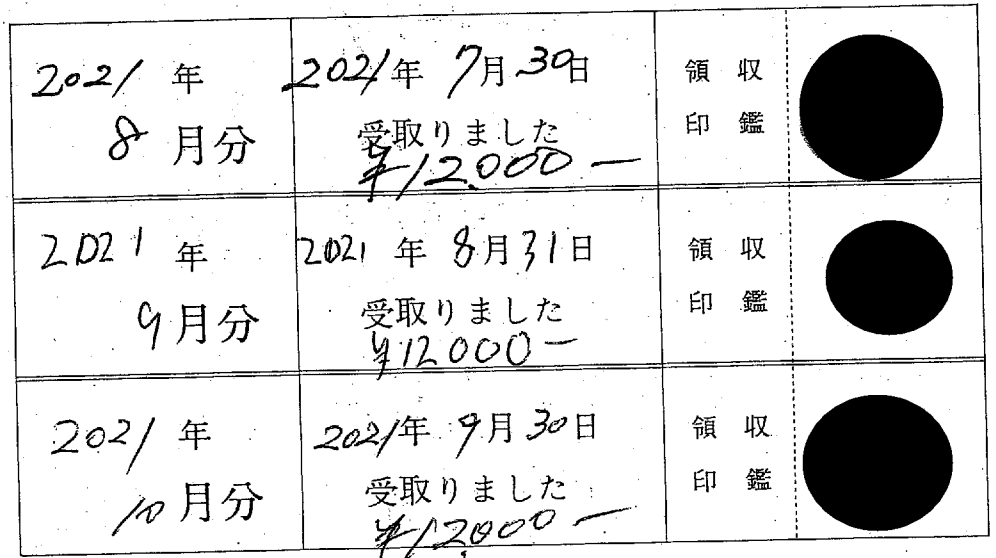 2021年
8月分
2021年7月30日
受取りました
¥12.000-
領収
印鑑
2021年
9月分
2021年8月31日
受取りました
¥12000-
領収
印鑑
2021年
10月分
2021年9月30日
受取りました
¥12000-
領収
印鑑